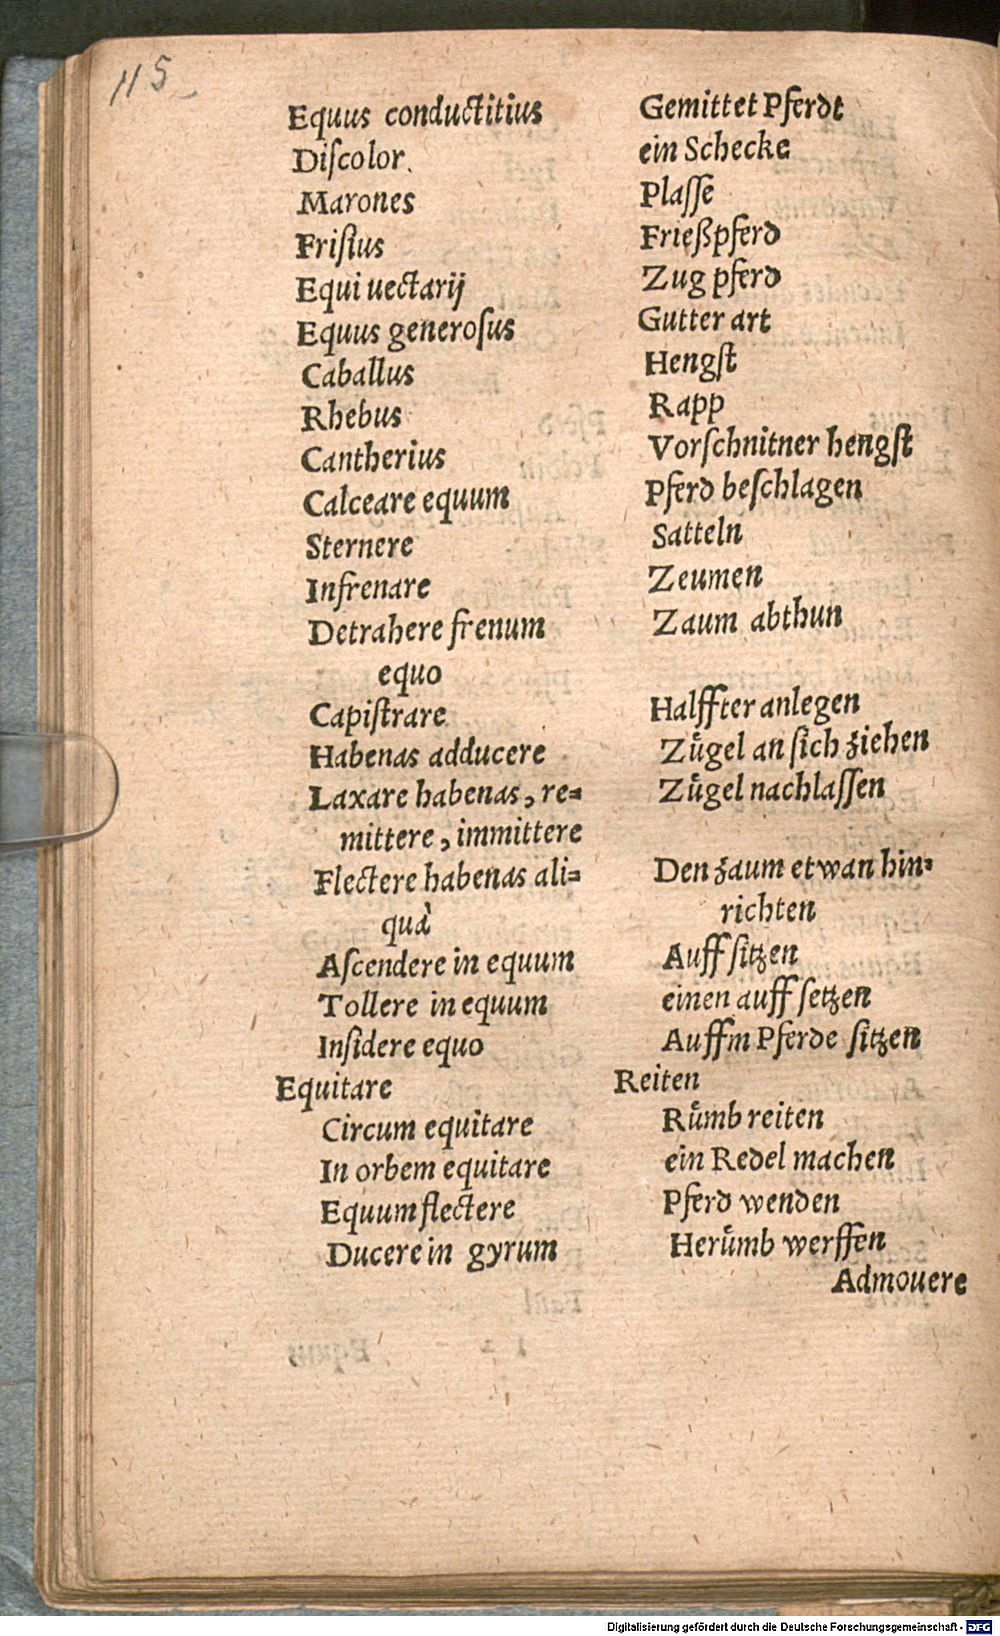 115
Equus conductitius Gemittet Pferdt
Diſcolor. ein Schecke
Marones Plaſſe
Friſius Frießpferd
Equi uectarij Zug pferd
Equus generoſus Gutter art
Caballus Hengſt
Rhebus Rapp
Cantherius Vorſchnitner hengſt
Calceare equum Pferd beſchlagen
Sternere Satteln
Infrenare Zeumen
Detrahere frenum Zaum abthun
equo
Capiſtrare Halffter anlegen
Habenas adducere Zuͤgel an ſich ziehen
Laxare habenas, re= Zuͤgel nachlaſſen
mittere, immittere
Flectere habenas ali= Den zaum etwan hin=
quà richten
Aſcendere in equum Auff ſitzen
Tollere in equum einen auff ſetzen
Inſidere equo Auffm Pferde ſitzen
Equitare Reiten
Circum equitare Ruͤmb reiten
In orbem equitare ein Redel machen
Equum flectere Pferd wenden
Ducere in gyrum Heruͤmb werffen
Admouere
Digitalisierung gefördert durch die Deutsche Forschungsgemeinschaft - DFG